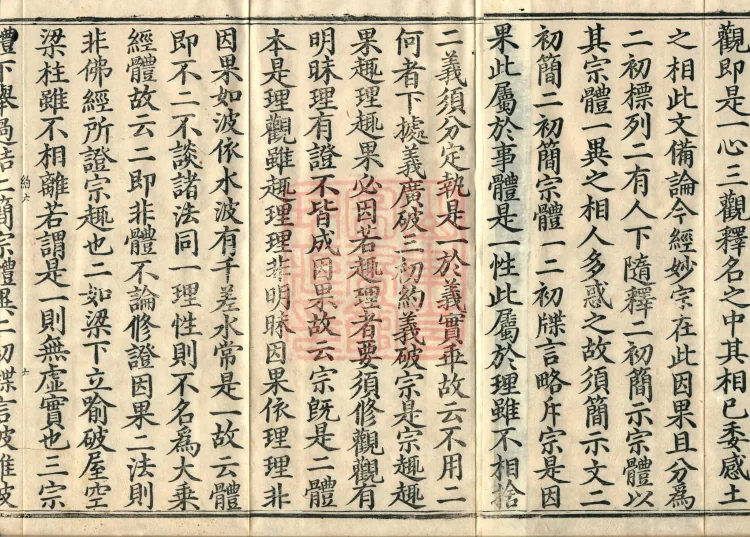 觀即是一心三觀釋名之中其相已委感土
之相此文備論今經妙宗在此因果且分為
二初標列二有人下隨釋二初簡示宗體以
其宗體一異之相人多惑之故須簡示文二
初簡二初簡宗體一二初牒言略斥宗是因
果此屬於事體是一性此屬於理雖不相捨
二義須分定執是一於義實乖故云不用二
何者下據義廣破三初約義破宗是宗趣趣
果趣理趣果必因若趣理者要須修觀觀有
明昧理有證不皆成因果故云宗旣是二體
本是理觀雖趣理理非明昧因果依理理非
因果如波依水波有千差水常是一故云體
即不二不談諸法同一理性則不名為大乗
經體故云二即非體不論修證因果二法則
非佛經所證宗趣也二如梁下立喻破屋空
梁柱雖不相離若謂是一則無虛實也三宗
約六
體下舉過結二簡宗體異二初牒言破雖彼